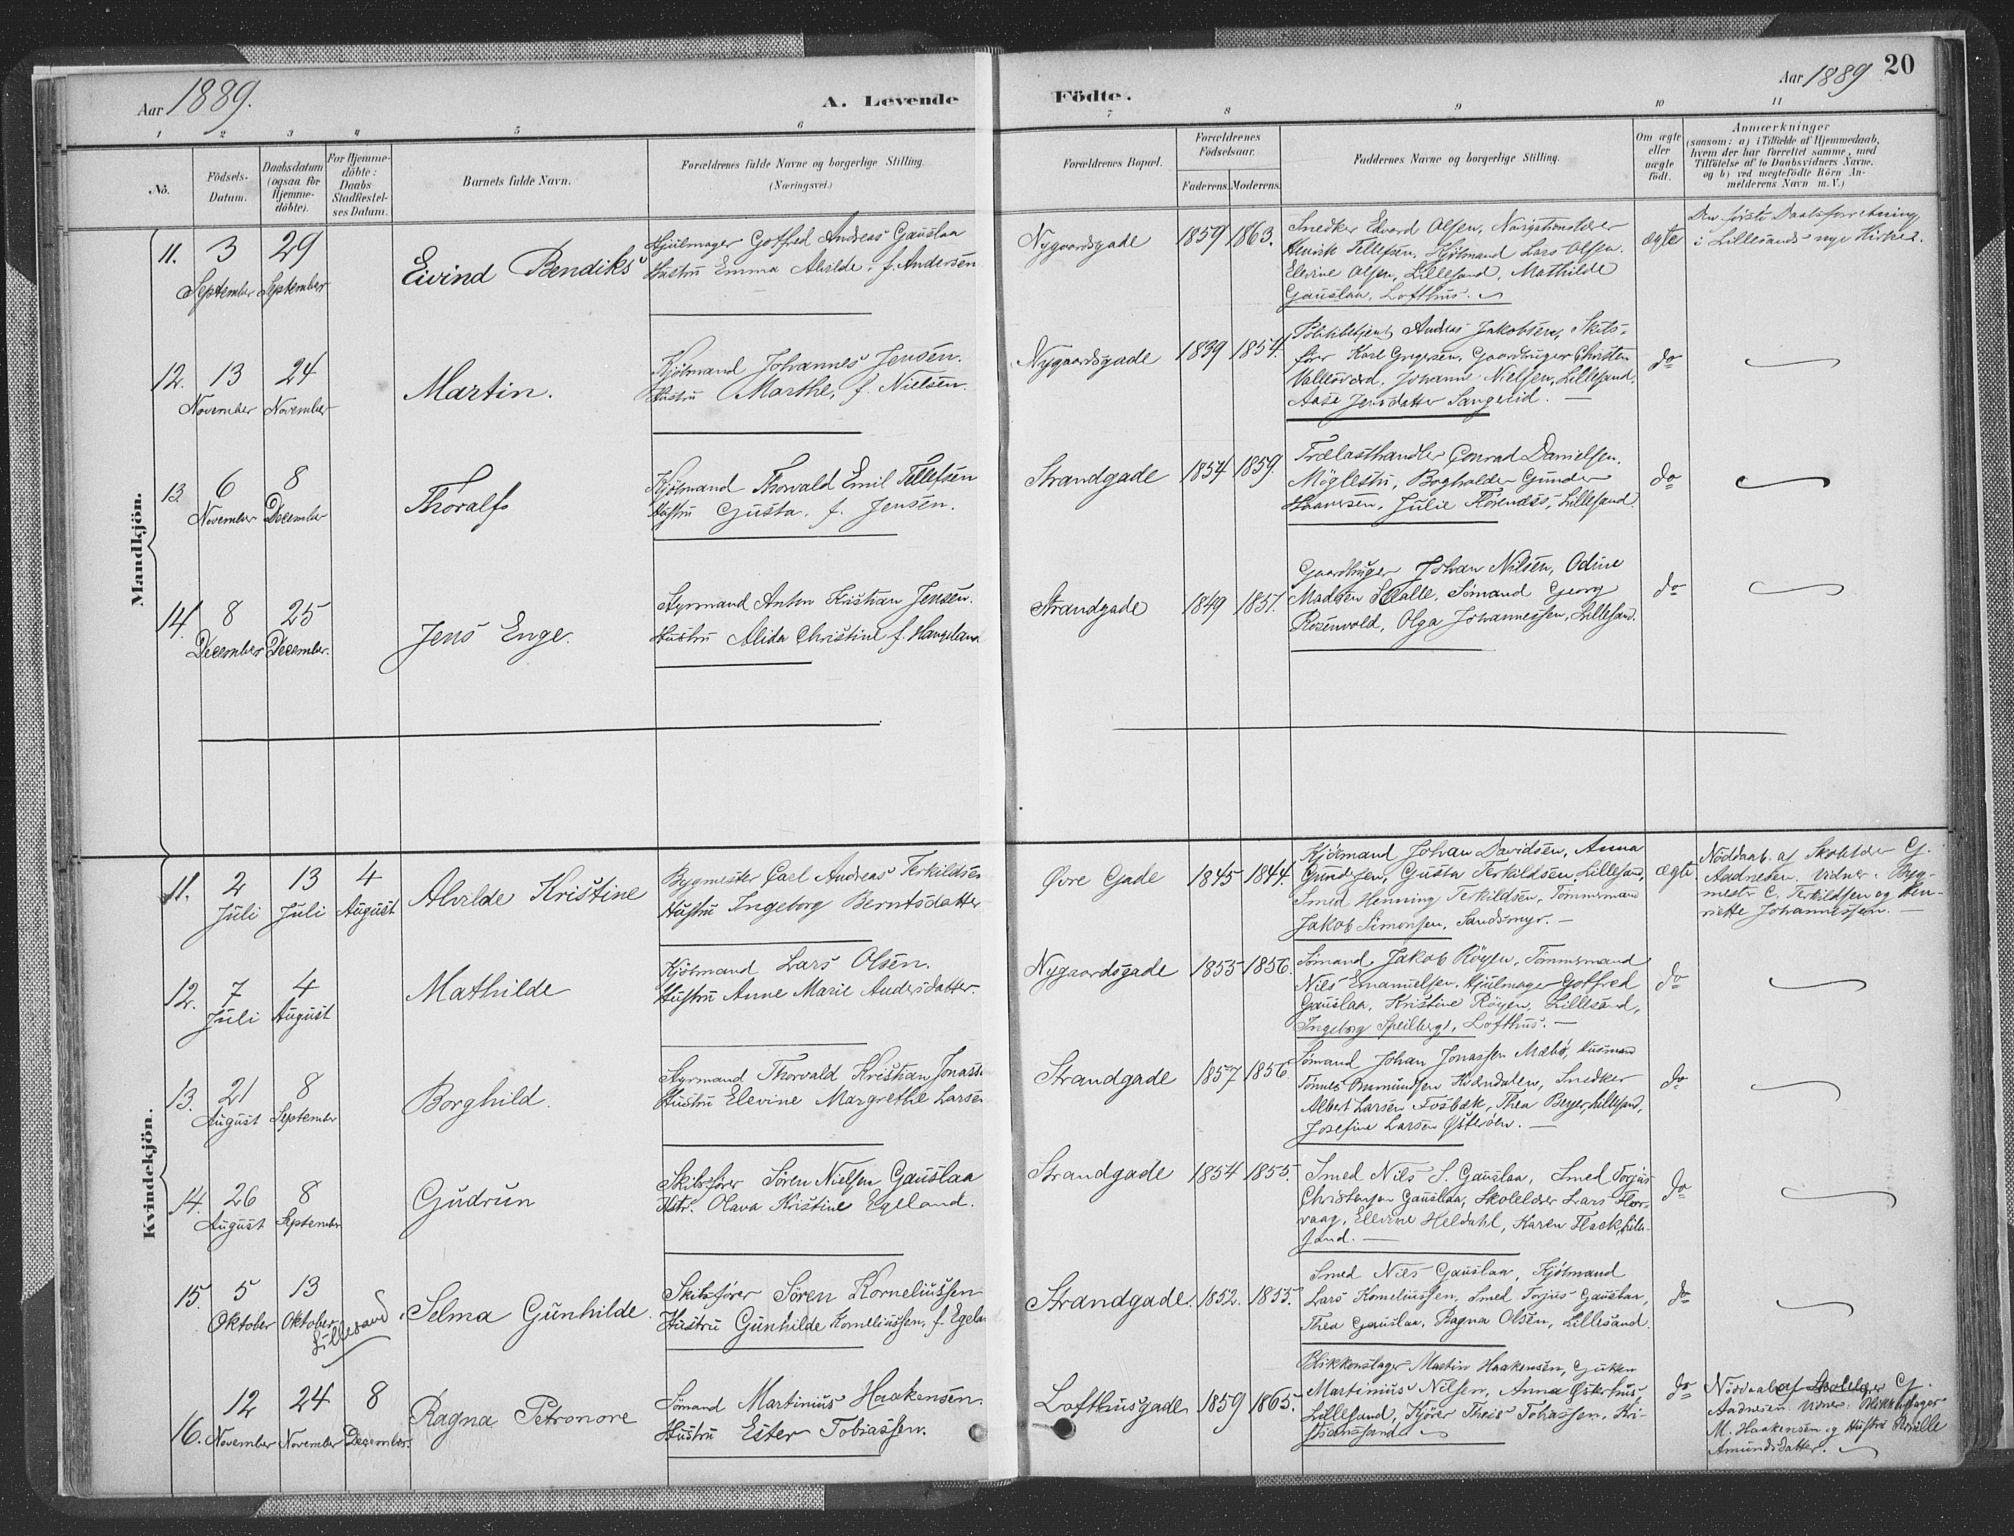 Aar 1889.
A. Levende
Födte.
Aar 1889
20
1 2 3 4 5 6 7 8 9 10 11
No.
Födsels-
Datum.
Daabsdatum
(ogsaa for
Hjemme-
döbte).
For Hjemme-
döbte:
Daabs
Stadfæstel-
ses Datum.
Barnets fulde Navn.
Forældrenes fulde Navne og borgerlige Stilling.
(Næringsvei.)
Forældrenes Bopæl.
Forældrenes
Födselsaar.
Faderens. Moderens.
Faddernes Navne og borgerlige Stilling.
Om ægte
eller
uægte
födt.
Anmærkninger
(saasom: a) i Tilfælde af Hjemmedaab,
hvem der har forrettet samme, med
Tilföielse af to Daabsvidners Navne,
og b) ved uægtefödte Börn An-
melderens Navn m. V.)
Mandkjön.
11.
3
September
29
September
Eivind Bendiks
Hjulmager Gotfred Andreas Gauslaa
Hustru Emma Alvilde, f. Andersen
Nygaardsgade
1859
1863.
Snedker Edvard Olsen, Navigationslærer
Henrik Tellefsen, Kjöbmand Lars Olsen
Elevine Olsen, Lillesand, Mathilde
Gauslaa, Lofthus.
ægte
Den første Daabsforretning
i Lillesands nye Kirke.
12.
13
November
24
November
Martin.
Kjöbmand Johannes Jensen.
Hustru Marthe, f. Nielsen.
Nygaardsgade
1839
1854.
Andreas Jakobsen, Skibs-
fører Karl Gregersen, Gaardbruger Christen
Vallesværd, Johanne Nielsen, Lillesand,
Aase Jensdatter Sangereid.
do
13.
6
November
8
December
Thoralf
Kjöbmand Thorvald Emil Tellefsen
Hustru Gusta, f. Jensen.
Strandgade
1854
1859.
Trælasthandler Conrad Danielsen,
Möglestu, Bogholder Gunder
Haaversen, Julie Lillesand.
do
14.
8
December
25
December.
Jens Enge.
Styrmand Anton Kristian Jensen.
Hustru Alida Christine f. Haugeland
Strandgade
1849
1857.
Gaardbruger Johan Nilsen, Odine
Madsen Sømand Georg
Rosenvold, Olga Johannessen, Lillesand.
do
Kvindekjön.
11.
2
Juli
13
Juli
4
August
Alvilde Kristine
Bygmester Carl Andreas Terkildsen
Hustru Ingeborg Berntsdatter
Øvre Gade
1845
1844.
Kjöbmand Johan Davidsen, Anna
Gundersen, Gusta Terkildsen Lillesand,
Smed Henning Terkildsen, Tömmermand
Jakob Simonsen, Sandsmyr.
ægte
Nöddaab af Skoleholder G.
Aadnesen. Vidner: Byg-
mester C. Terkildsen og Hen-
riette Johannessen.
12.
7
Juli
4
August
Mathilde
Kjöbmand Lars Olsen.
Hustru Anne Marie Andersdatter.
Nygaardsgade
1855
1856.
Sömand Jakob Röyen, Tömmermand
Nils Emanuelsen, Hjulmager Gotfred
Gauslaa, Kristine Röyen, Lillesand,
Ingeborg Speilberg, Lofthus.
do
13.
21
August
8
September
Borghild.
Styrmand Thorvald Kristian Jonassen
Hustru Elevine Margrethe Larsen
Strandgade
1857
1856
Sömand Johan Jonassen Mæbö, Husmand
Tönnes Osmundsen Kvændalen, Snedker
Albert Larsen Fosbæk, Thea Beyer, Lillesand,
Josefine Larsen Østeröen.
do
14.
26
August
8
September
Gudrun
Skibsförer Sören Nielsen Gauslaa
Hstr. Olava Kristine Egeland.
Strandgade
1854
1855.
Smed Nils S. Gauslaa, Smed Torjus
Christensen Gauslaa, Skoleholder Lars Flor-
vaag, Elevine Heldahl, Karen Flack, Lille-
sand.
do
15.
5
Oktober
13
Oktober
Lillesand
Selma Gunhilde.
Skibsförer Sören Korneliussen
Hustru Gunhilde Korneliussen, f. Egeland
Strandgade.
1852.
1855.
Smed Nils Gauslaa, Kjöbmand
Lars Korneliussen, Smed Torjus Gauslaa,
Thea Gauslaa, Ragna Olsen, Lillesand.
do
16.
12
November
24
November
8
December.
Ragna Petronore
Sömand Martinius Haakensen.
Hustru Ester Tobiassen.
Lofthusgade.
1859
1865.
Blikkenslager Martin Haakensen, Gutten
Martinius Nilsen, Anna Østerhus,
Lillesand, Kjörer Theis Tobiassen, Kri-
stianssand
do
Nöddaab af Skoleholder G.
Aadnesen. Vidner: Blikkenslager
M. Haakensen og Hustru Pernille
Amundsdatter.